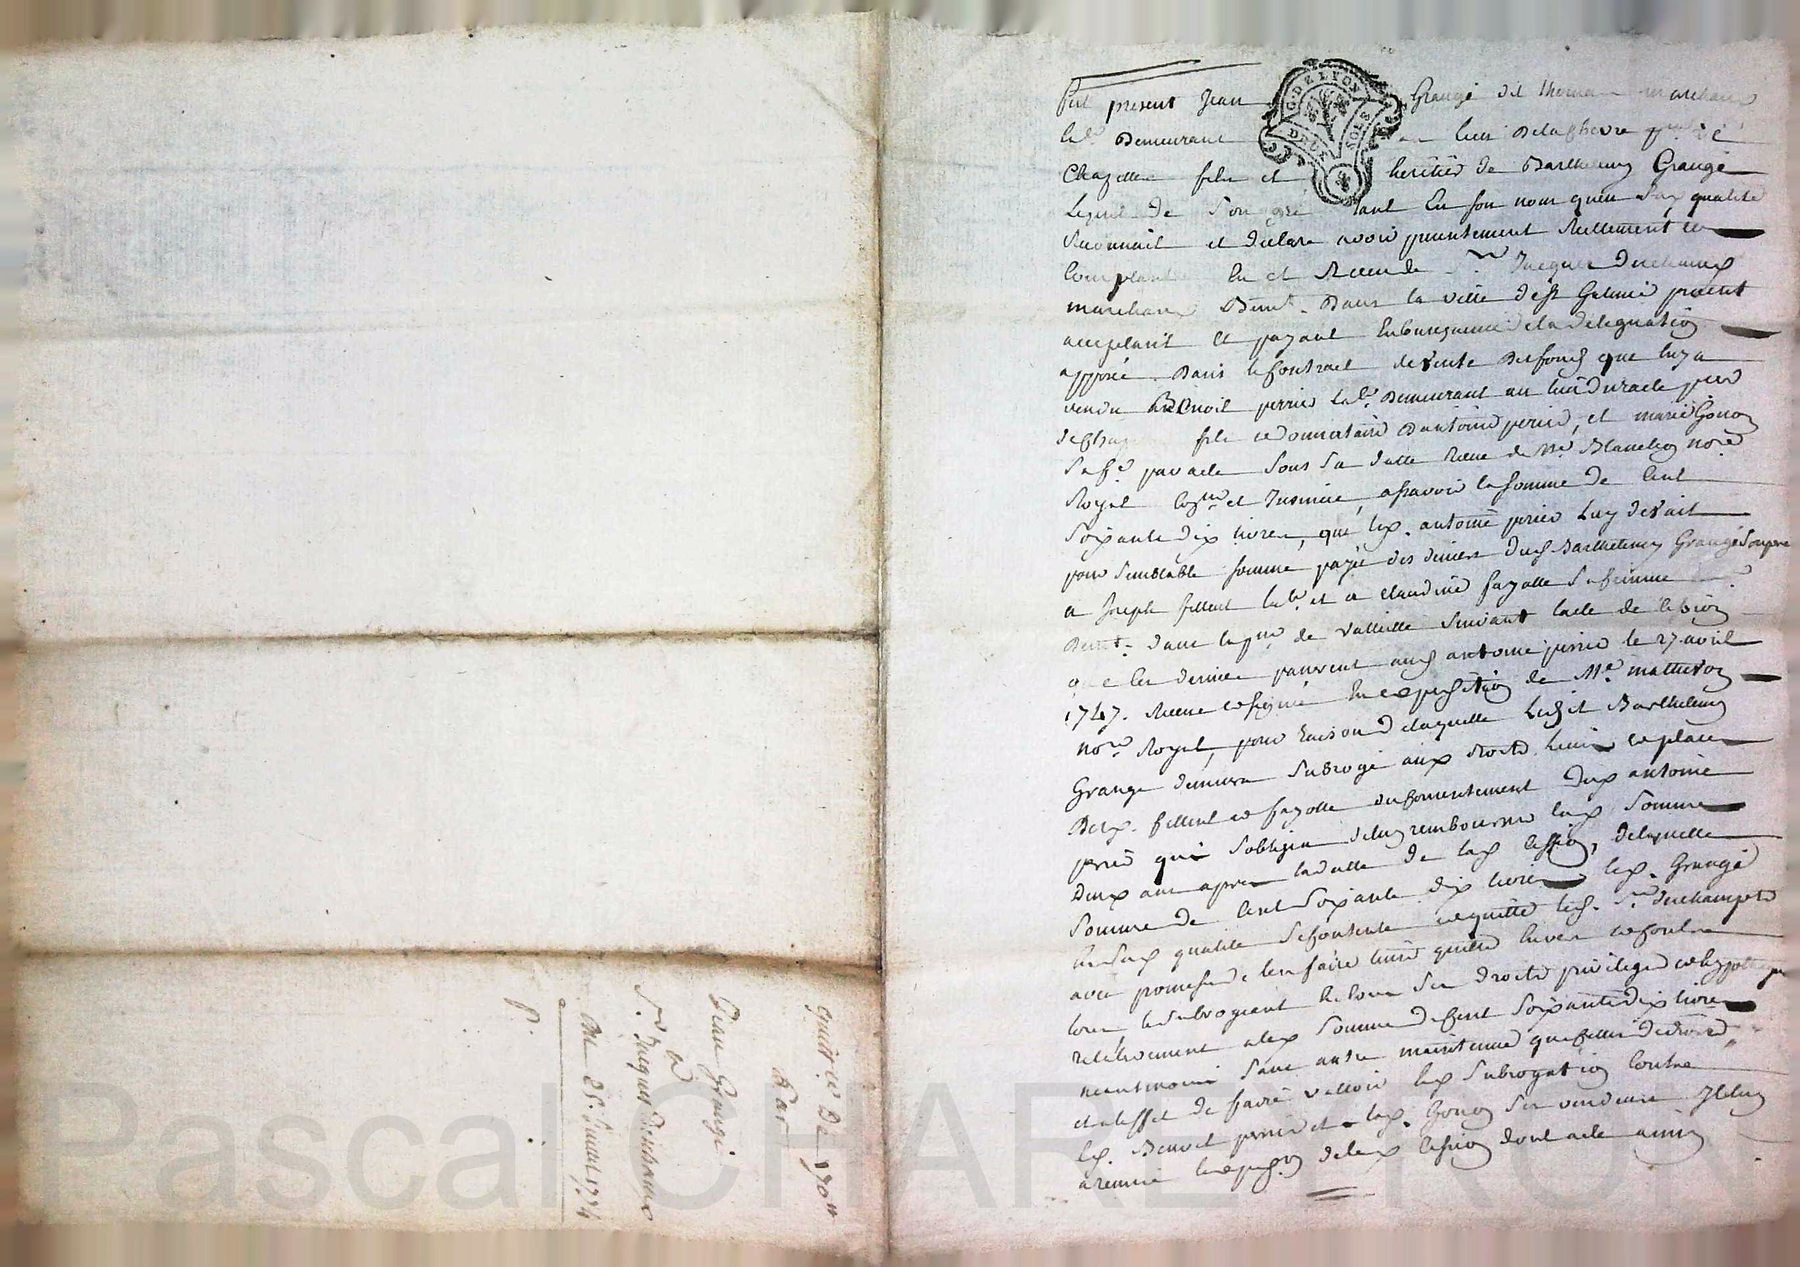 quitce de 170 ll
Par
Jean Grangé
a
Sr Jacques Duchamp
Du 25 Janvier 1774
G. DE LYON
DEUX SOLS
Fut present Jean Grangé dit marchand
lab. Demeurant lieu
Chazelle fils et heritier de Barthelemy Grangé
de son tant En son nom qu'en sad. qualité
Reconnait et declare avoir presentement Reellement
comptant Eu et Receu de Sr Jacques Duchamp
marchand Demt. Dans la ville de st Galmier present
acceptant et payant Ensuequence de la delegation
apposée Dans le Contract de vente Desfonds que luy a
vendu Benoit perrier lab. Demeurant au lieu
fils et donnataire D'antoine perrier, et marie Gonon
Sa fe. par acte sous sa datte Receu de Me. Blanchon nore
Royal et Insinué, asavoir la somme de Cent
Soixante dix livres, que led. antoine perier Luy devait
pour Semblable somme payée des deniers dud. Barthelemy Grangé Son pere
a Joseph fillent lab. et a claudine fayolle Sa femme
Demt. dans la psse de valleille Suivant lacte de cession
que les derniers passerent aud. antoine perrier le 27 avril
1747. Receue et signée En expedition de Me. mathevon
nore Royal, pour Raison de laquelle Ledit Barthelemy
Grange demeura Subrogé aux droits, lieux et place
Desd. fillent et fayolle du Consentement Dud. antoine
perrié qui s'obligea de luy rembourser lad. Somme
Deux ans apres la datte de lad. cession, de laquelle
Somme de Cent Soixante dix livres led. Grangé
En sad. qualité Se Contente et quitte led. Sr. Duchamp
avec promesse de len faire tenir quitte Envers et Contre
tous le Subrogeant En tous Ses droits privileges et hypotheques
relativement a lad. Somme de Cent Soixante dix livres
neantmoins Sans autre maintenue que Celle de droit
et aleffet de faire valloir lad. Subrogation Contre
led. Benoit perrier et lad. Gonon Ses vendeurs Il luy
a remis lexpedon. de lad. Cession dont acte ainsi